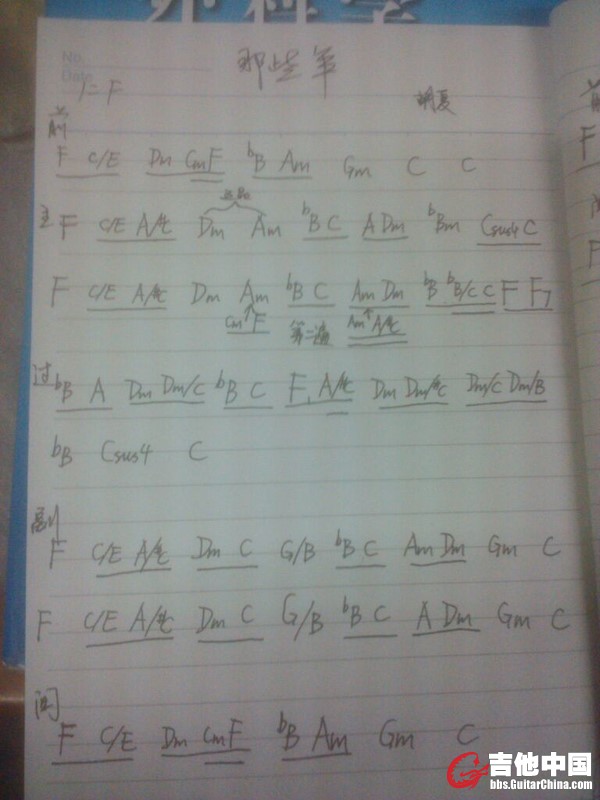 外科学
No.
Date
那些年
1=F
胡夏
前
F C/E Dm Cm F bB Am Gm C C
主 F C/E A/#C Dm Am bB C A Dm bBm Csus4 C
F C/E A/#C Dm Am bB C Am Dm bB bB/C C F F7
Cm F 第二遍 Am A/#C
过 bB A Dm Dm/C bB C F A/#C Dm Dm/#C Dm/C Dm/B
bB Csus4 C
副
F C/E A/#C Dm C G/B bB C Am Dm Gm C
F C/E A/#C Dm C G/B bB C A Dm Gm C
间
F C/E Dm Cm F bB Am Gm C
前
F
F
吉他中国
bbs.GuitarChina.com